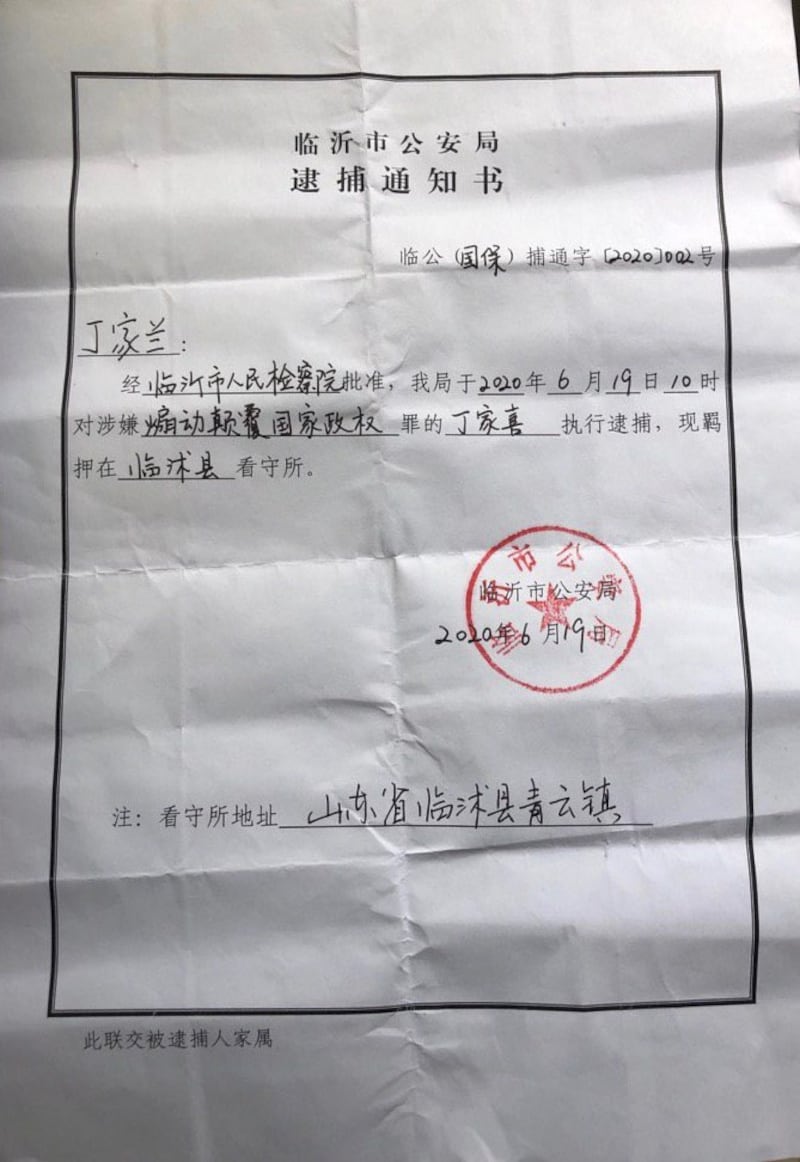 临沂市公安局
逮捕通知书
临公（国保）捕通字〔2020〕002号
丁家兰：
经临沂市人民检察院批准，我局于2020年6月19日10时
对涉嫌煽动颠覆国家政权罪的丁家喜执行逮捕，现羁
押在临沭县看守所。
临沂市公安局
临沂市公安局
2020年6月19日
注：看守所地址山东省临沭县青云镇
此联交被逮捕人家属